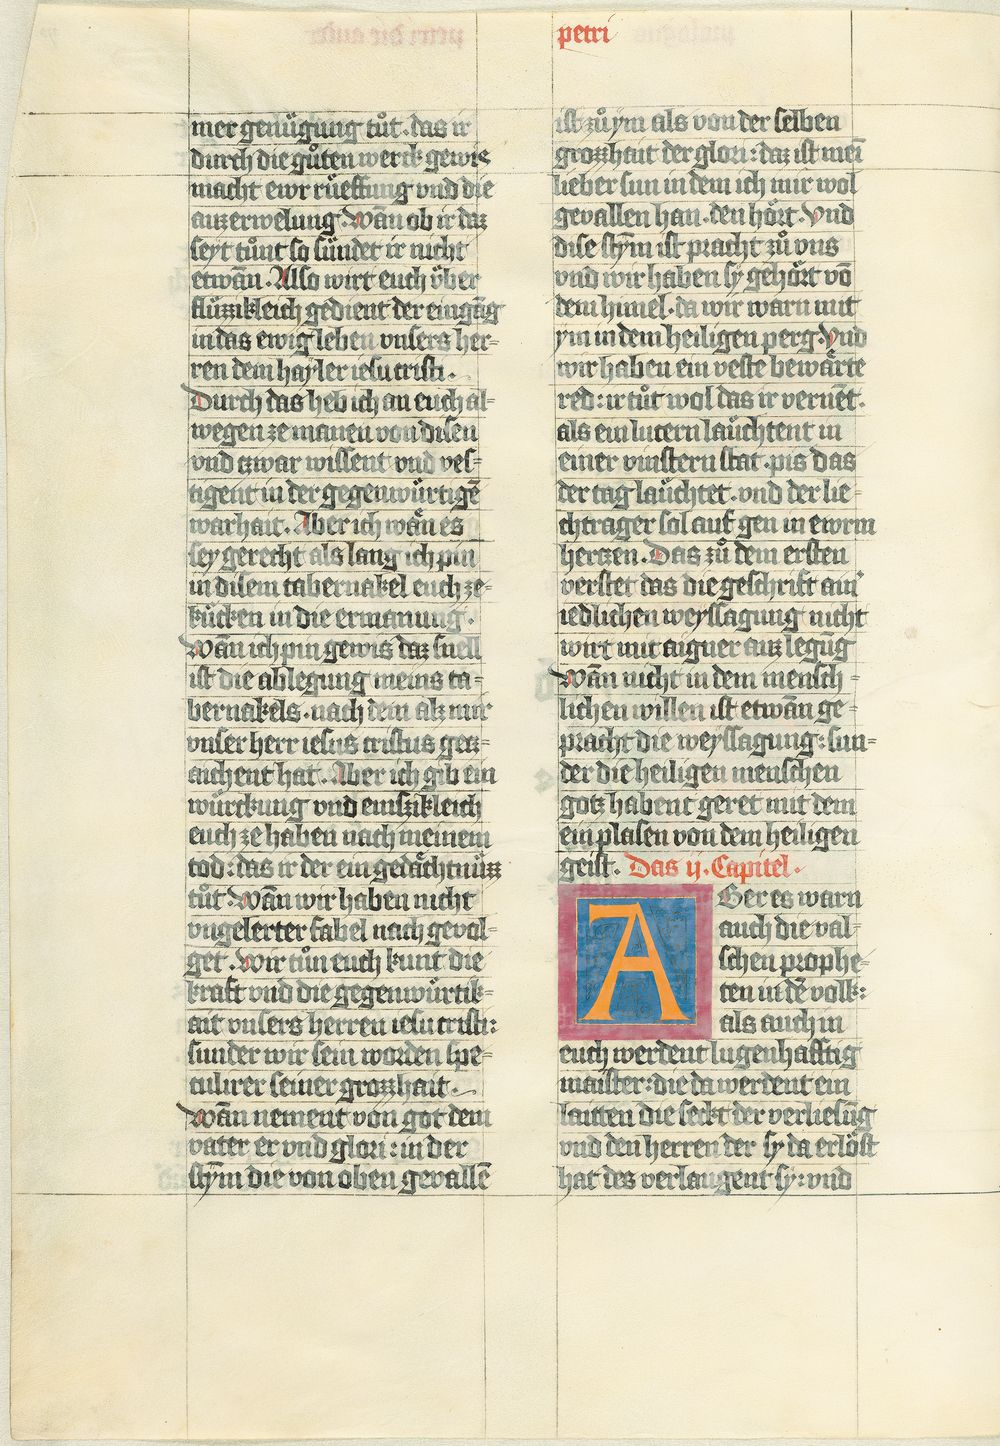 petri
mer genügung tůt. das ir
durch die gůten werck gewis
macht ewr rüeffung vnd die
auzerwelung. Wān ob ir daz
seyt tůnt so sündet ir nicht
etwān. Also wirt euch über
flüzzikleich gedient der eingāg
in das ewig leben vnsers her=
ren dem hayler iesu cristi.
Durch das heb ich an euch al=
wegen ze manen von disen
vnd czwar wissent vnd ves=
tigent in der gegenwürtigē
warhait. Aber ich wän es
sey gerecht als lang ich pin
in disem tabernakel euch ze=
kücken in die ermanung.
Wān ich pin gewis daz snell
ist die ablegung meins ta=
bernakels. nach dem alz mir
vnser herr iesus cristus getz=
aichent hat. Aber ich gib ein
würckung vnd emszikleich
euch ze haben nach meinem
tod: das ir der ein gedächtnüzz
tůt. Wān wir haben nicht
vngelerter fabel nach geuol=
get. Wir tůn euch kunt die
kraft vnd die gegenwürtik=
ait vnsers herren iesu cristi:
sunder wir sein worden spe=
culirer seiner grozzhait.
Wān nement von got dem
vater er vnd glori: in der
stÿm die von oben geuallē
ist zů ym als von der selben
grozzhait der glori: daz ist mei
lieber sun in dem ich mir wol
geuallen han. den hört. Vnd
dise stÿm ist pracht zů vns
vnd wir haben sy gehört vō
dem himel. da wir warn mit
ym in dem heiligen perg. Vnd
wir haben ein veste bewärte
red: ir tůt wol das ir vernēt.
als ein lucern läuchtent in
einer vinstern stat. pis das
der tag läuchtet. vnd der lie=
chtrager sol auf gen in ewrm
herczen. Das zů dem ersten
verstet das die geschrift ain
iedlichen weyssagung nicht
wirt mit aigner auz legūg
Wān nicht in dem mensch=
lichen willen ist etwān ge=
pracht die weyssagung: sun=
der die heiligen menschen
gotz habent geret mit dem
ein plasen von dem heiligen
geist. Das ij. Capitel.
ABer es warn
auch die val=
schen prophe=
ten in dē volk:
als auch in
euch werdent lugenhafftig
maister: die da werdent ein
laitten die seckt der verliesūg
vnd den herren der sy da erlöst
hat des verlaugent sy: vnd